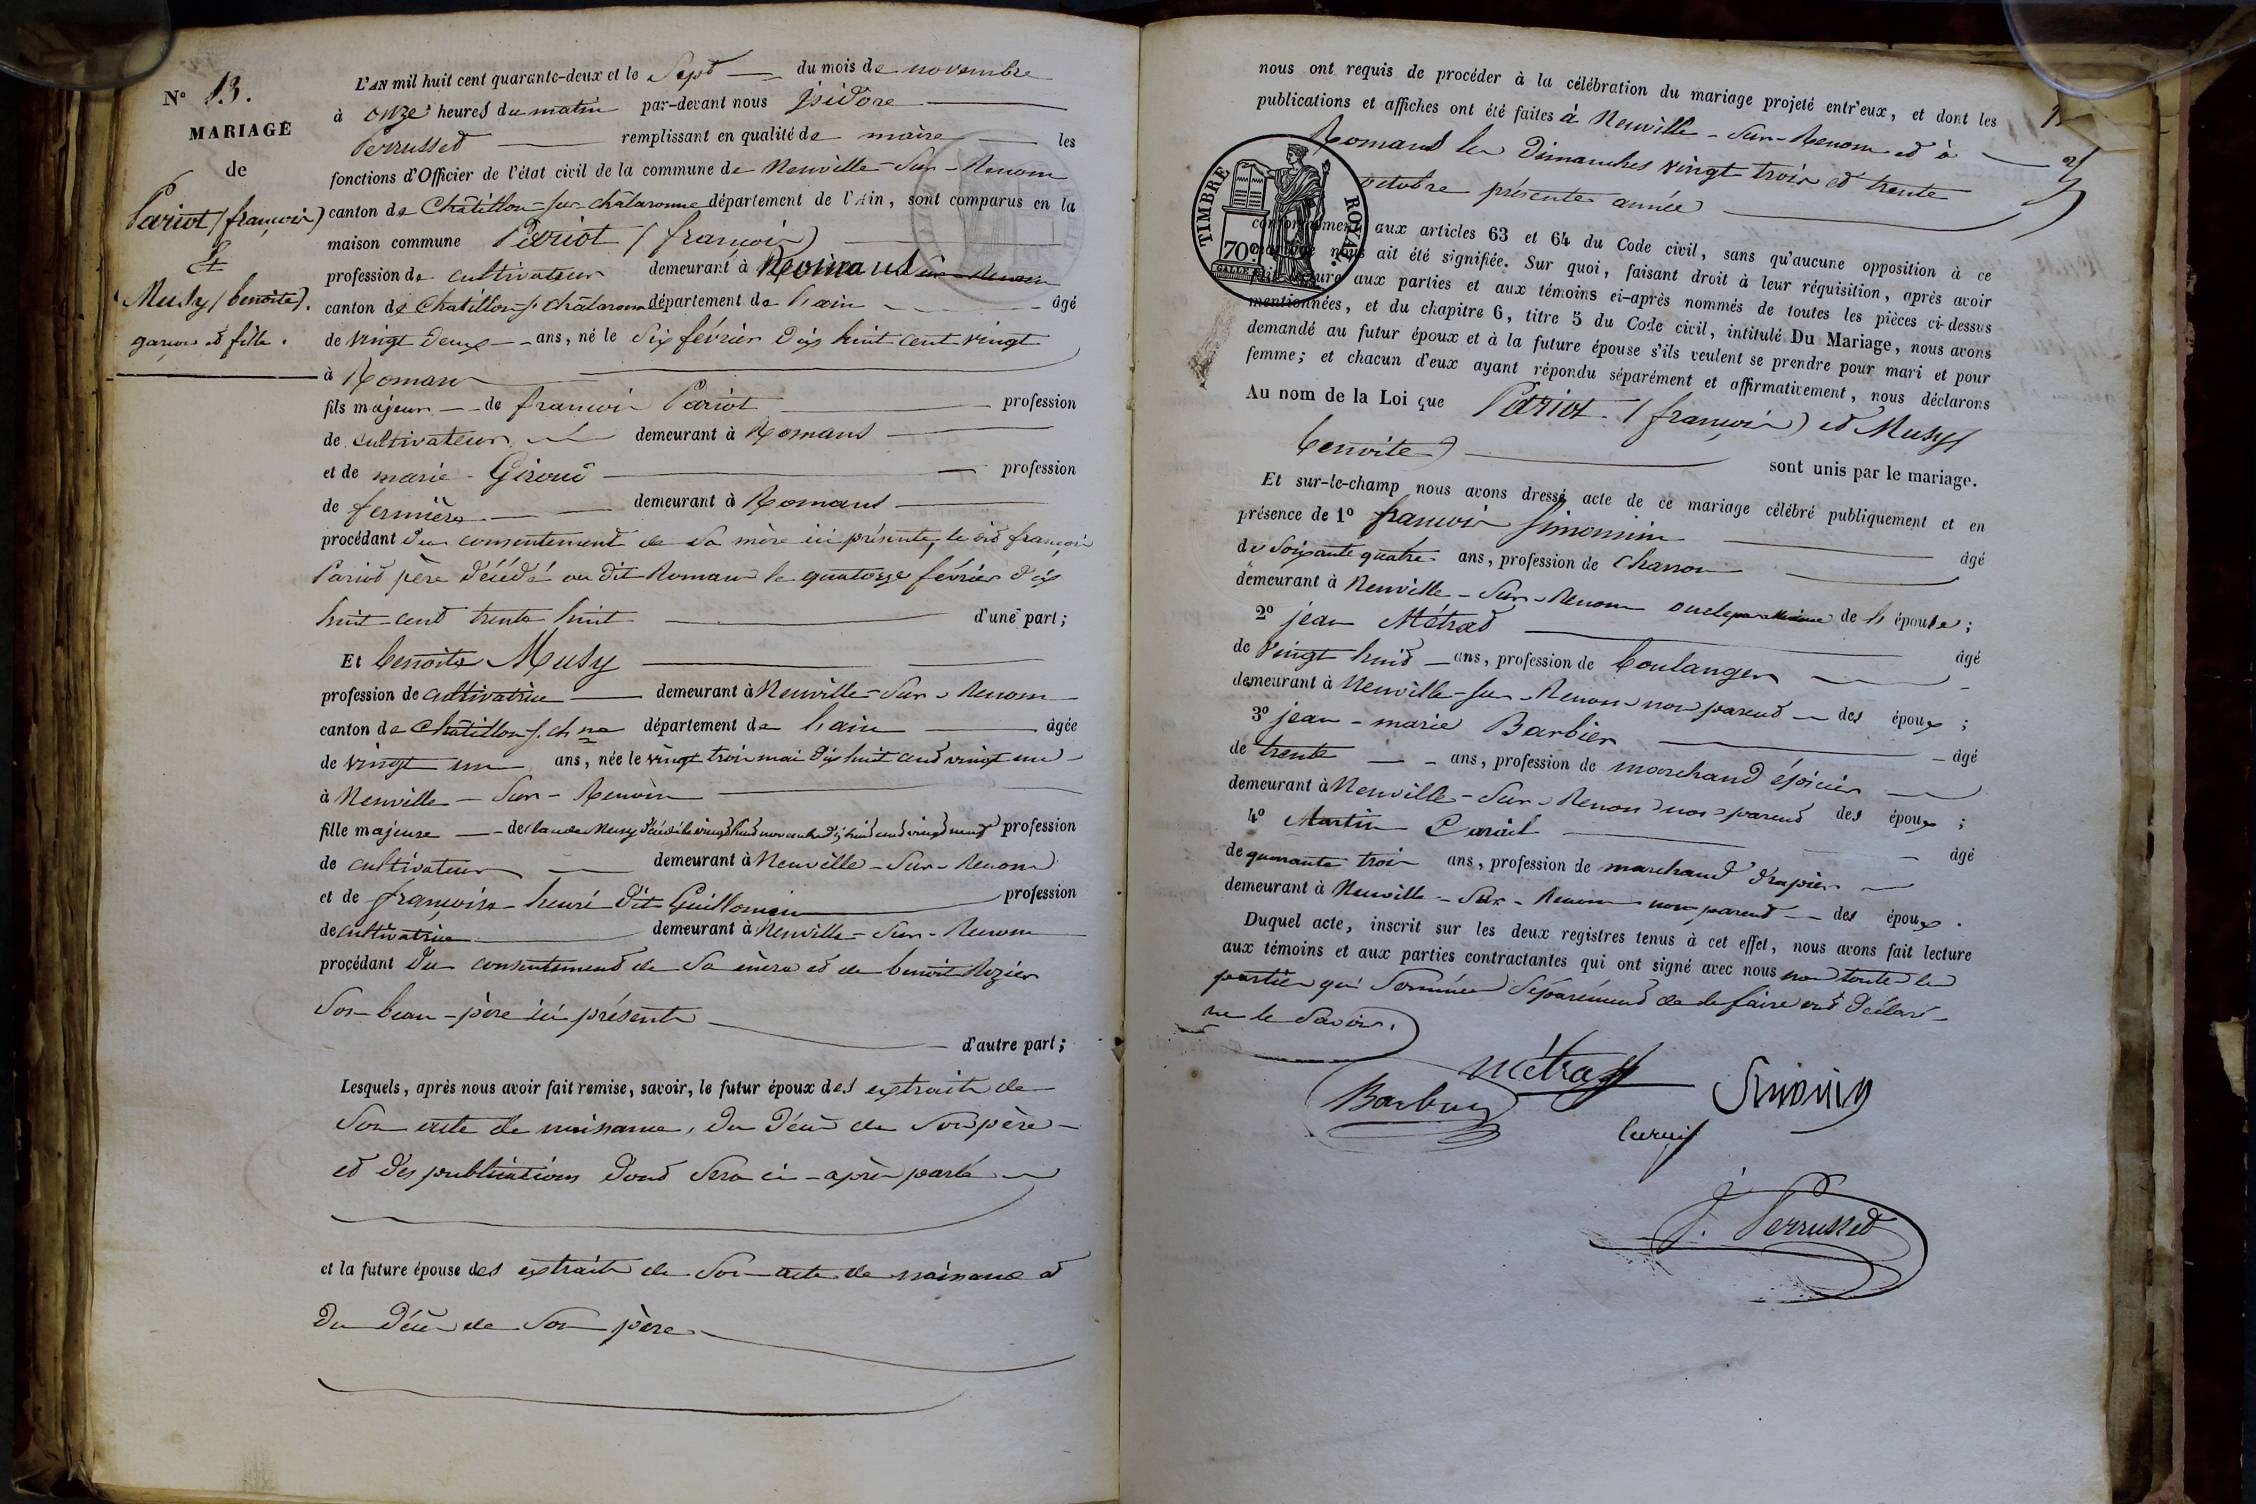 N° 13.
MARIAGE
de
Pariot (françois)
Et
Musy (benoite).
garçon et fille.
L'AN mil huit cent quarante-deux et le Sept du mois de novembre
à onze heures du matin par-devant nous Isidore
Perrusset remplissant en qualité de maire les
fonctions d'Officier de l'état civil de la commune de Neuville-Sur-Renom
canton de Châtillon-sur-châlaronne département de l'Ain, sont comparus en la
maison commune Pariot (françois)
profession de cultivateur demeurant à Romans
canton de Chatillon s. châlaronne département de l'ain âgé
de vingt deux ans, né le six février dix huit cent vingt
à Romans
fils majeur de françois Pariot profession
de cultivateur demeurant à Romans
et de marie Giroud profession
de fermière demeurant à Romans
procédant du consentement de sa mère ici présente, le dit françois
Pariot père décédé au dit Romans le quatorze février dix
huit cent trente huit d'une part;
Et benoite Musy
profession de cultivatrice demeurant à Neuville-Sur-Renom
canton de Chatillon s. ch ne département de l'ain âgée
de vingt un ans, née le vingt trois mai dix huit cent vingt un
à Neuville-Sur-Renom
fille majeure de claude Musy décédé le vingt huit novembre dix huit cent vingt neuf profession
de cultivateur demeurant à Neuville-Sur-Renom
et de françoise henri dit Guillomin profession
de cultivatrice demeurant à Neuville-Sur-Renom
procédant du consentement de sa mère et de benoit Rozier
son beau-père ici présents
d'autre part;
Lesquels, après nous avoir fait remise, savoir, le futur époux des extraits de
son acte de naissance, du décès de son père
et des publications dont sera ci-après parlé
et la future épouse des extraits de son acte de naissance et
du décès de son père
nous ont requis de procéder à la célébration du mariage projeté entr'eux, et dont les
publications et affiches ont été faites à Neuville-Sur-Renom et à
Romans les dimanches vingt trois et trente
octobre présente année
TIMBRE ROYAL
70c
conformément aux articles 63 et 64 du Code civil, sans qu'aucune opposition à ce
mariage nous ait été signifiée. Sur quoi, faisant droit à leur réquisition, après avoir
fait lecture aux parties et aux témoins ci-après nommés de toutes les pièces ci-dessus
mentionnées, et du chapitre 6, titre 5 du Code civil, intitulé Du Mariage, nous avons
demandé au futur époux et à la future épouse s'ils veulent se prendre pour mari et pour
femme; et chacun d'eux ayant répondu séparément et affirmativement, nous déclarons
Au nom de la Loi que Pariot (françois) et Musy (
benoite) sont unis par le mariage.
Et sur-le-champ nous avons dressé acte de ce mariage célébré publiquement et en
présence de 1° françois Simonnin âgé
de soixante quatre ans, profession de charron
demeurant à Neuville-Sur-Renom oncle de l'épouse;
2° jean Métrat âgé
de vingt huit ans, profession de boulanger
demeurant à Neuville-sur-Renom non parent des époux;
3° jean-marie Barbier âgé
de trente ans, profession de marchand épicier
demeurant à Neuville-Sur-Renom non parent des époux;
4° Martin âgé
de quarante trois ans, profession de marchand drapier
demeurant à Neuville-Sur-Renom non parent des époux.
Duquel acte, inscrit sur les deux registres tenus à cet effet, nous avons fait lecture
aux témoins et aux parties contractantes qui ont signé avec nous non toutes les
parties qui sommées séparément de le faire ont déclaré
ne le savoir.
Métrat
Barbier
J. Perrusset